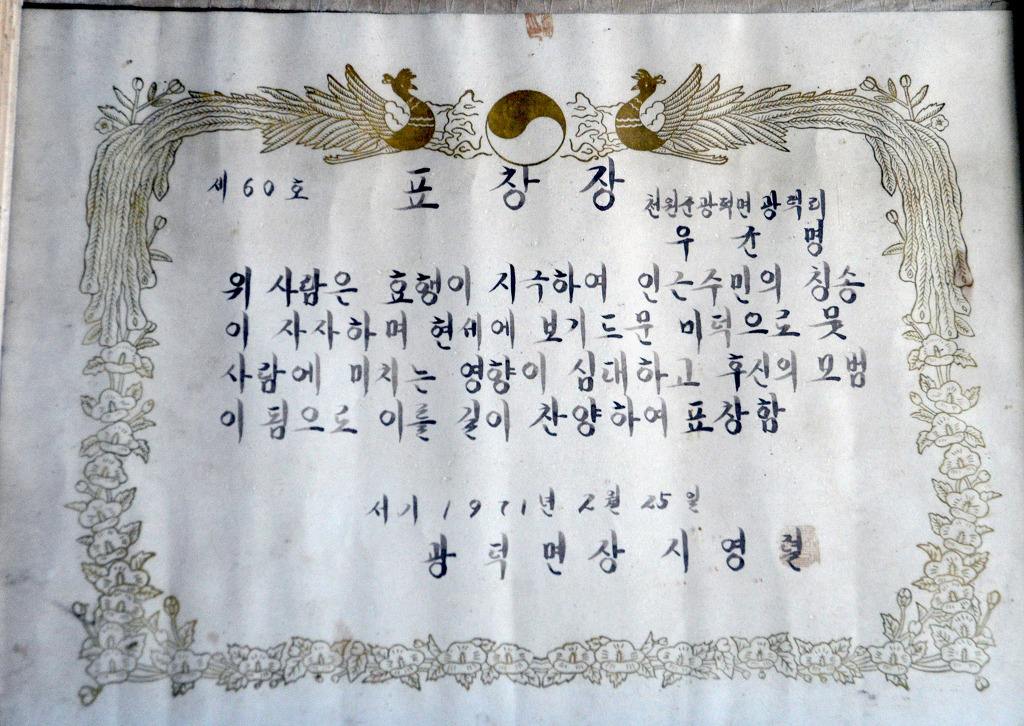 제 60 호
표 창 장
천원군 광덕면 광덕리
우 윤 명
위 사람은 효행이 지극하여 인근주민의 칭송
이 자자하며 현세에 보기드문 미덕으로 뭇
사람에 미치는 영향이 심대하고 후신의 모범
이 됨으로 이를 길이 찬양하여 표창함
서기 1971년 2월 25일
광 덕 면 장 지 영